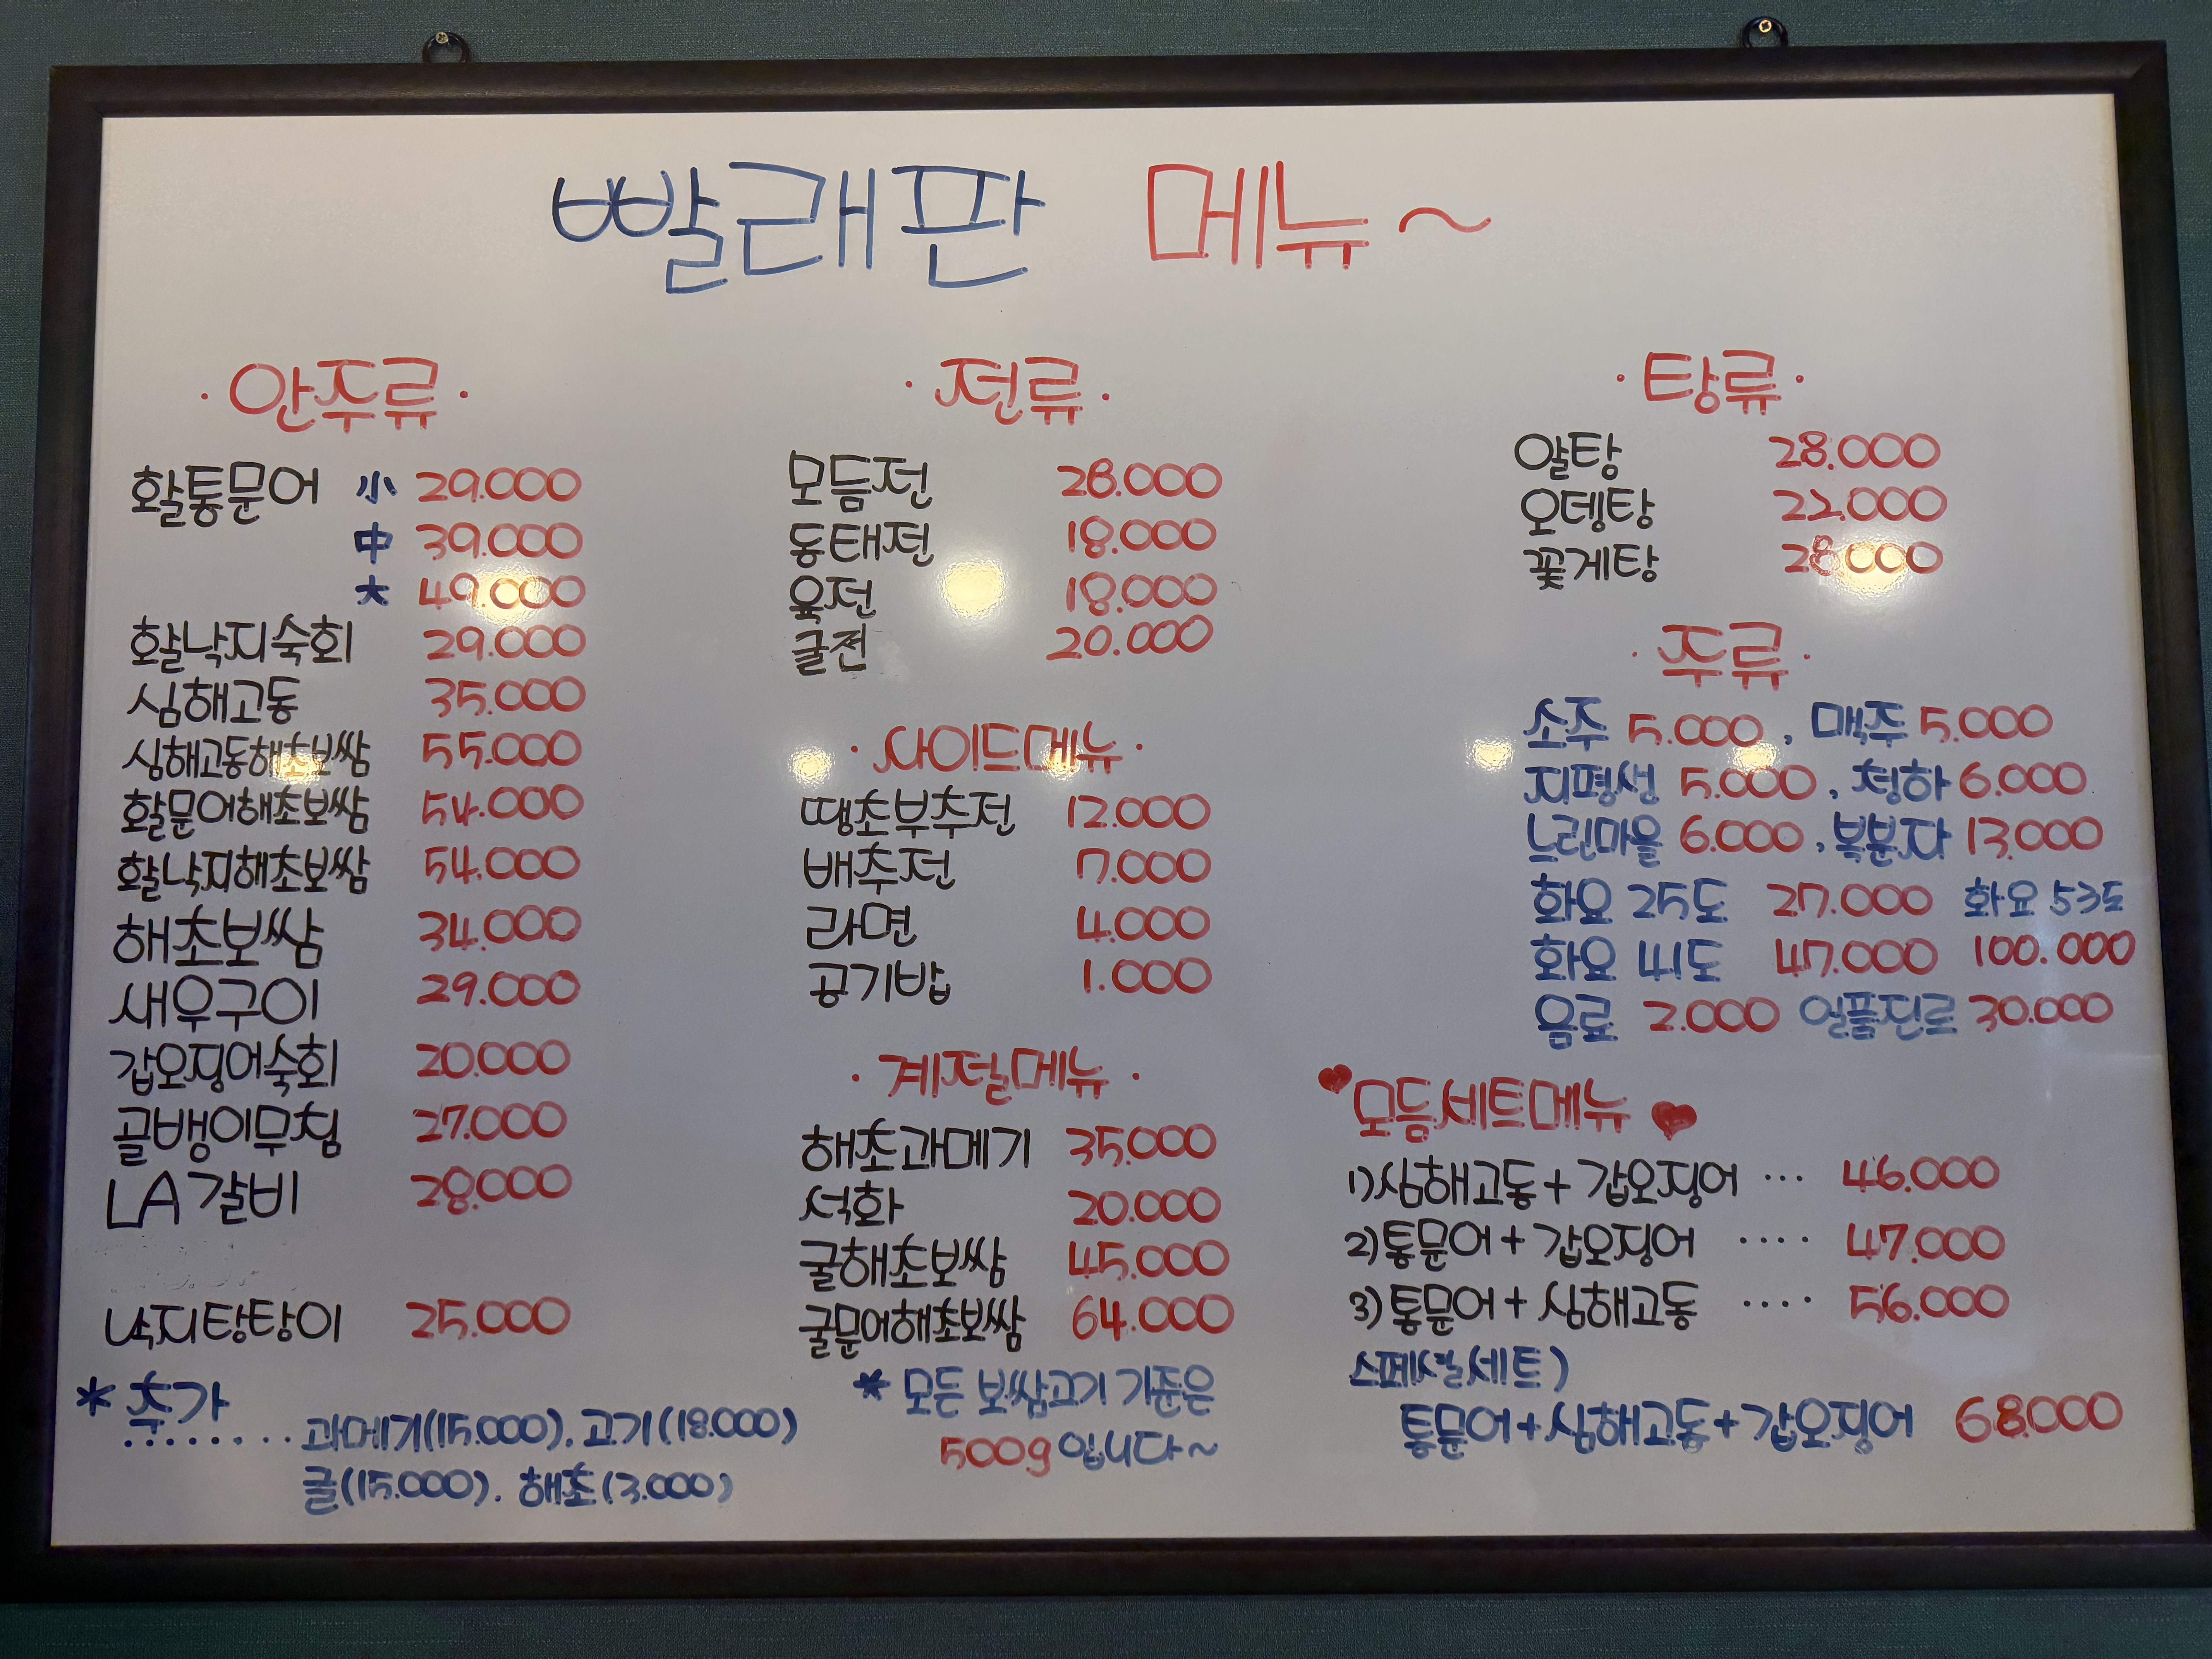 빨래판 메뉴~
·안주류·
활통문어 小 29.000
中 39.000
大 49.000
활낙지숙회 29.000
심해고동 35.000
심해고동해초보쌈 55.000
활문어해초보쌈 54.000
활낙지해초보쌈 54.000
해초보쌈 34.000
새우구이 29.000
갑오징어숙회 20.000
골뱅이무침 27.000
LA갈비 28.000
낙지탕탕이 25.000
* 추가
........과메기(15.000). 고기(18.000)
굴(15.000). 해초(3.000)
·전류·
모듬전 28.000
동태전 18.000
육전 18.000
굴전 20.000
·사이드메뉴·
땡초부추전 12.000
배추전 7.000
라면 4.000
공기밥 1.000
·계절메뉴·
해초과메기 35.000
석화 20.000
굴해초보쌈 45.000
굴문어해초보쌈 64.000
* 모든 보쌈고기 기준은
500g입니다~
·탕류·
알탕 28.000
오뎅탕 22.000
꽃게탕 28.000
·주류·
소주 5.000, 맥주 5.000
지평생 5.000, 청하 6.000
느린마을 6.000, 복분자 13.000
화요 25도 27.000 화요 53도
화요 41도 47.000 100.000
음료 2.000 일품진로 30.000
♥모듬세트메뉴♥
1)심해고동+갑오징어 ... 46.000
2)통문어+갑오징어 .... 47.000
3)통문어+심해고동 .... 56.000
스페셜세트)
통문어+심해고동+갑오징어 68.000